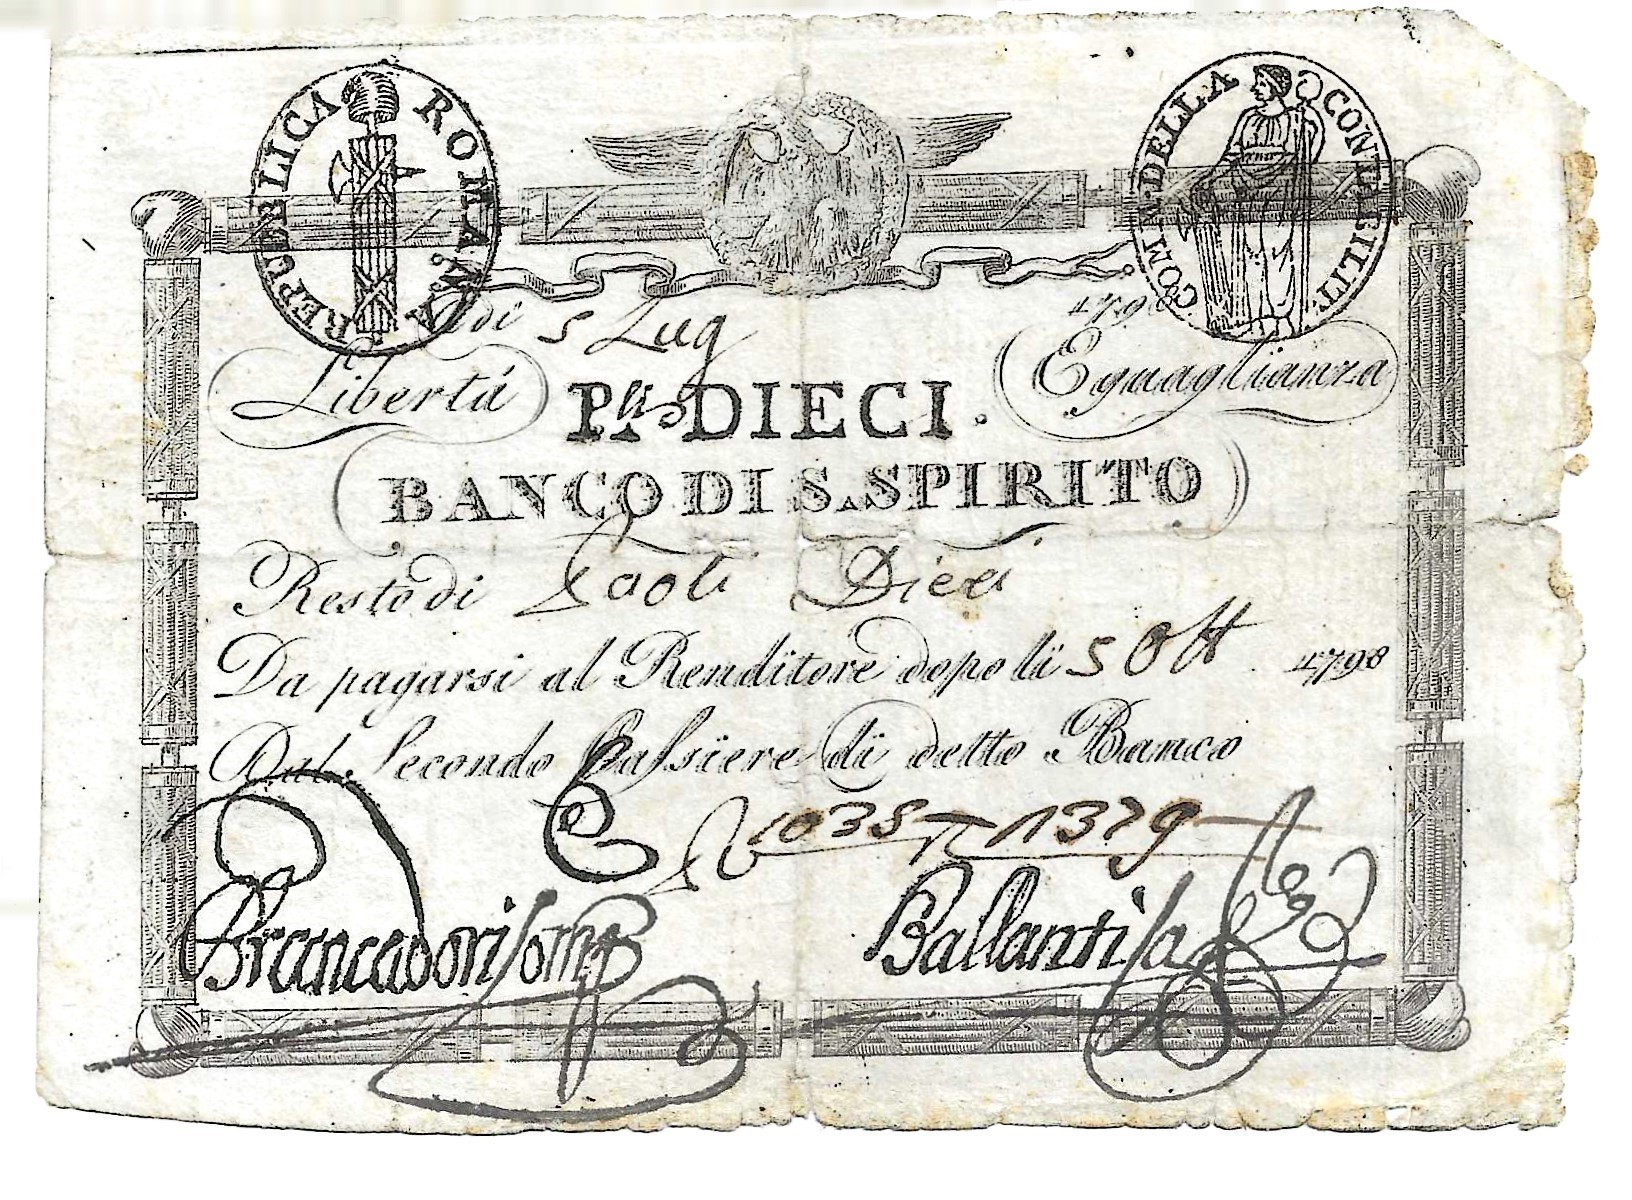 REPUBLICA ROMANA
COM. DELLA CONTABILIT.
Adi 5 Lug 1798
Libertá
Pli DIECI.
Eguaglianza
BANCO DI S. SPIRITO
Resto di Paoli Dieci
Da pagarsi al Renditore dopo li 5 Ott 1798
Dal Secondo Cassiere di detto Banco
1035 1379
Brancadori
Ballanti